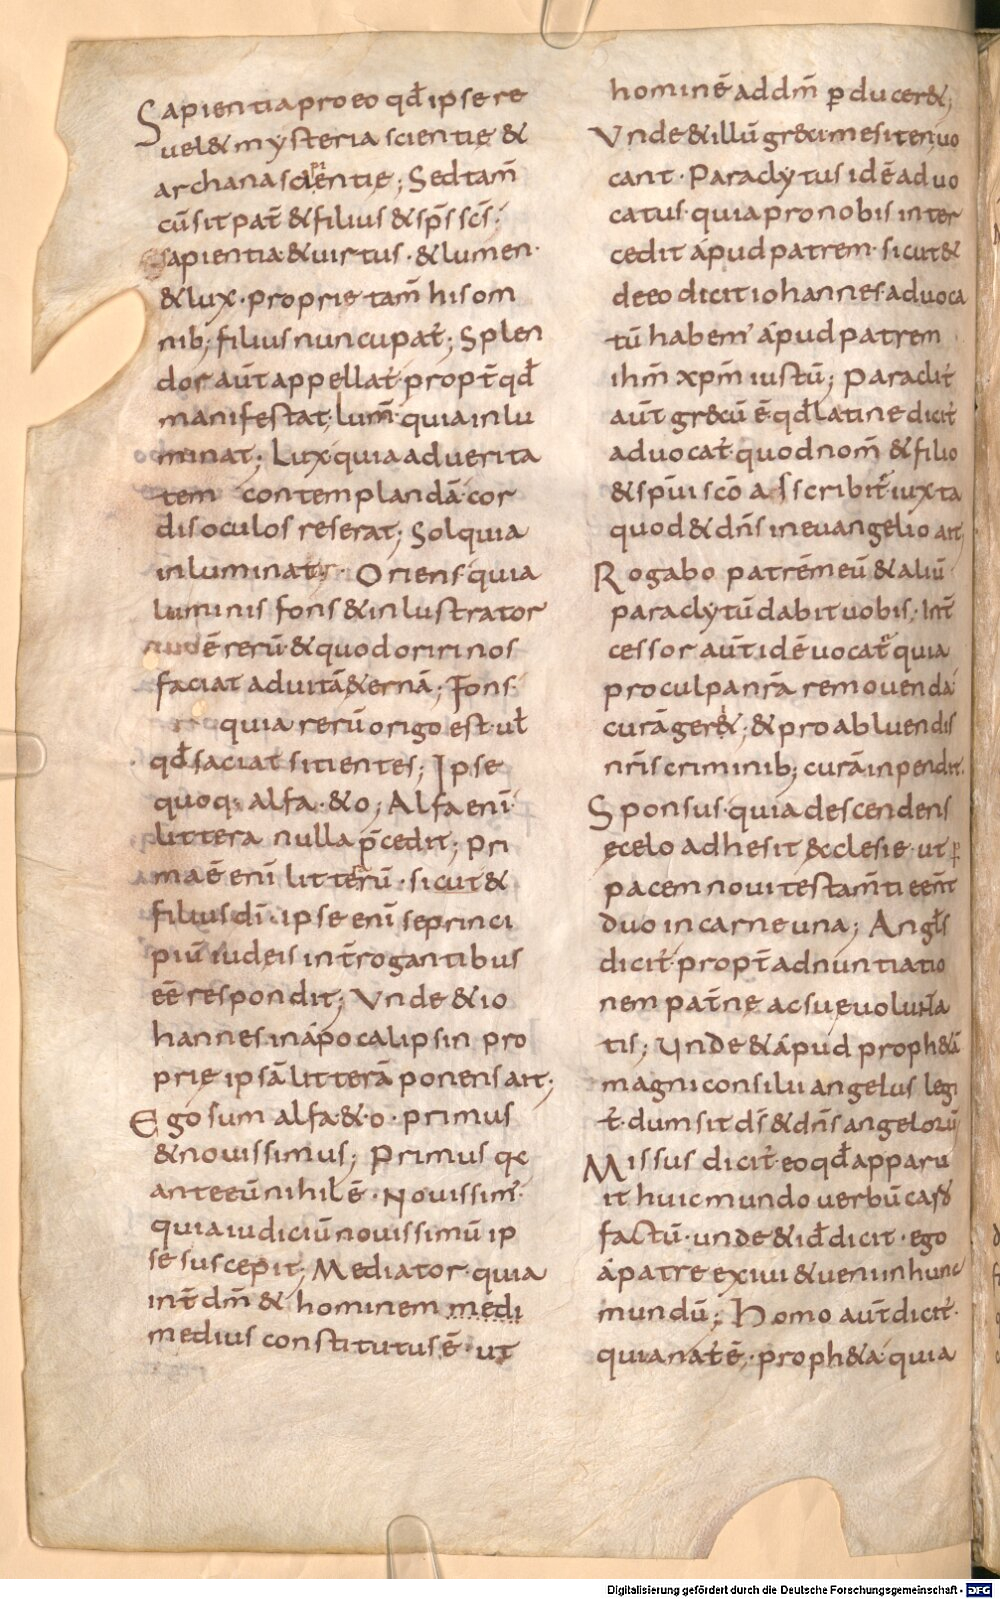 Sapientia pro eo qd̄ ipse re
uel& mysteria scientię &
archana sapientię; Sed tam̄
cū sit pat̄ & filius & sp̄s sc̄s·
sapientia· & uirtus· & lumen·
& lux· proprie tam̄ his om
nib; filius nuncupat̄; Splen
dor aūt appellat̄· propt̄ qd̄
manifestat; lum̄· quia inlu
minat; Lux· quia ad uerita
tem contemplandā cor
dis oculos reserat; Sol quia
inluminat· Oriens· quia
luminis fons & inlustrator
ē rerū· & quod oriri nos
faciat ad uitā &ernā; Fons·
quia rerū origo est· ut̄
qd̄ saciat sitientes; Ipse
quoq; alfa· & o; Alfa enī
littera nulla p̄cedit; Pri
ma ē enī litterū· sicut &
filius dī· ipse enī se princi
piū iudeis int̄rogantibus
eē respondit; Vnde & io
hannes in ápocalipsin pro
prie ipsā litterā ponens ait;
Ego sum alfa & o· primus
& nouissimus; Primus qc
ante eū nihil ē· Nouissim'·
quia iudiciū nouissimū ip
se suscepit; Mediator· quia
int̄ dm̄ & hominem medi
medius constitutus ē· ut
hominē ad dm̄ p̱ducer&;
Vnde & illū gr&ci mesiten uo
cant· Paraclytus id ē aduo
catus· quia pro nobis inter
cedit ápud patrem· sicut &
de eo dicit iohannes· aduoca
tū habem' ápud patrem
ihm̄ xpm̄ iustū; Paraclit̄
aūt gr&cū ē qd̄ latine dicit̄
aduocat̄· quod nom̄ & filio
& spūi scō asscribit̄· iuxta
quod & dn̄s in euangelio ait;
Rogabo patrē meū & aliū
paraclytū dabit uobis· Int̄
cessor aūt id ē uocat̄ quia
pro culpa nr̄a remouenda
curā ger&; & pro abluendis
nr̄is criminib; curā inpendit·
Sponsus· quia descendens
ęcelo adhesit &cclesię· ut p̱
pacem noui testam̄ti eēnt
duo in carne una; Angl̄s
dicit̄· propt̄ adnuntiatio
nem pat̄nę ac suę uolunta
tis; Unde & ápud proph&ā
magni consilii angelus legi
t̄· dum sit ds̄ & dn̄s angelorū
Missus dicit̄· eo qd̄ apparu
it huic mundo uerbū caro
factū· unde & id̄ dicit· ego
á patre exiui & ueni in hunc
mundū; Homo aūt dicit̄·
quia nat̄ ē· proph&a· quia